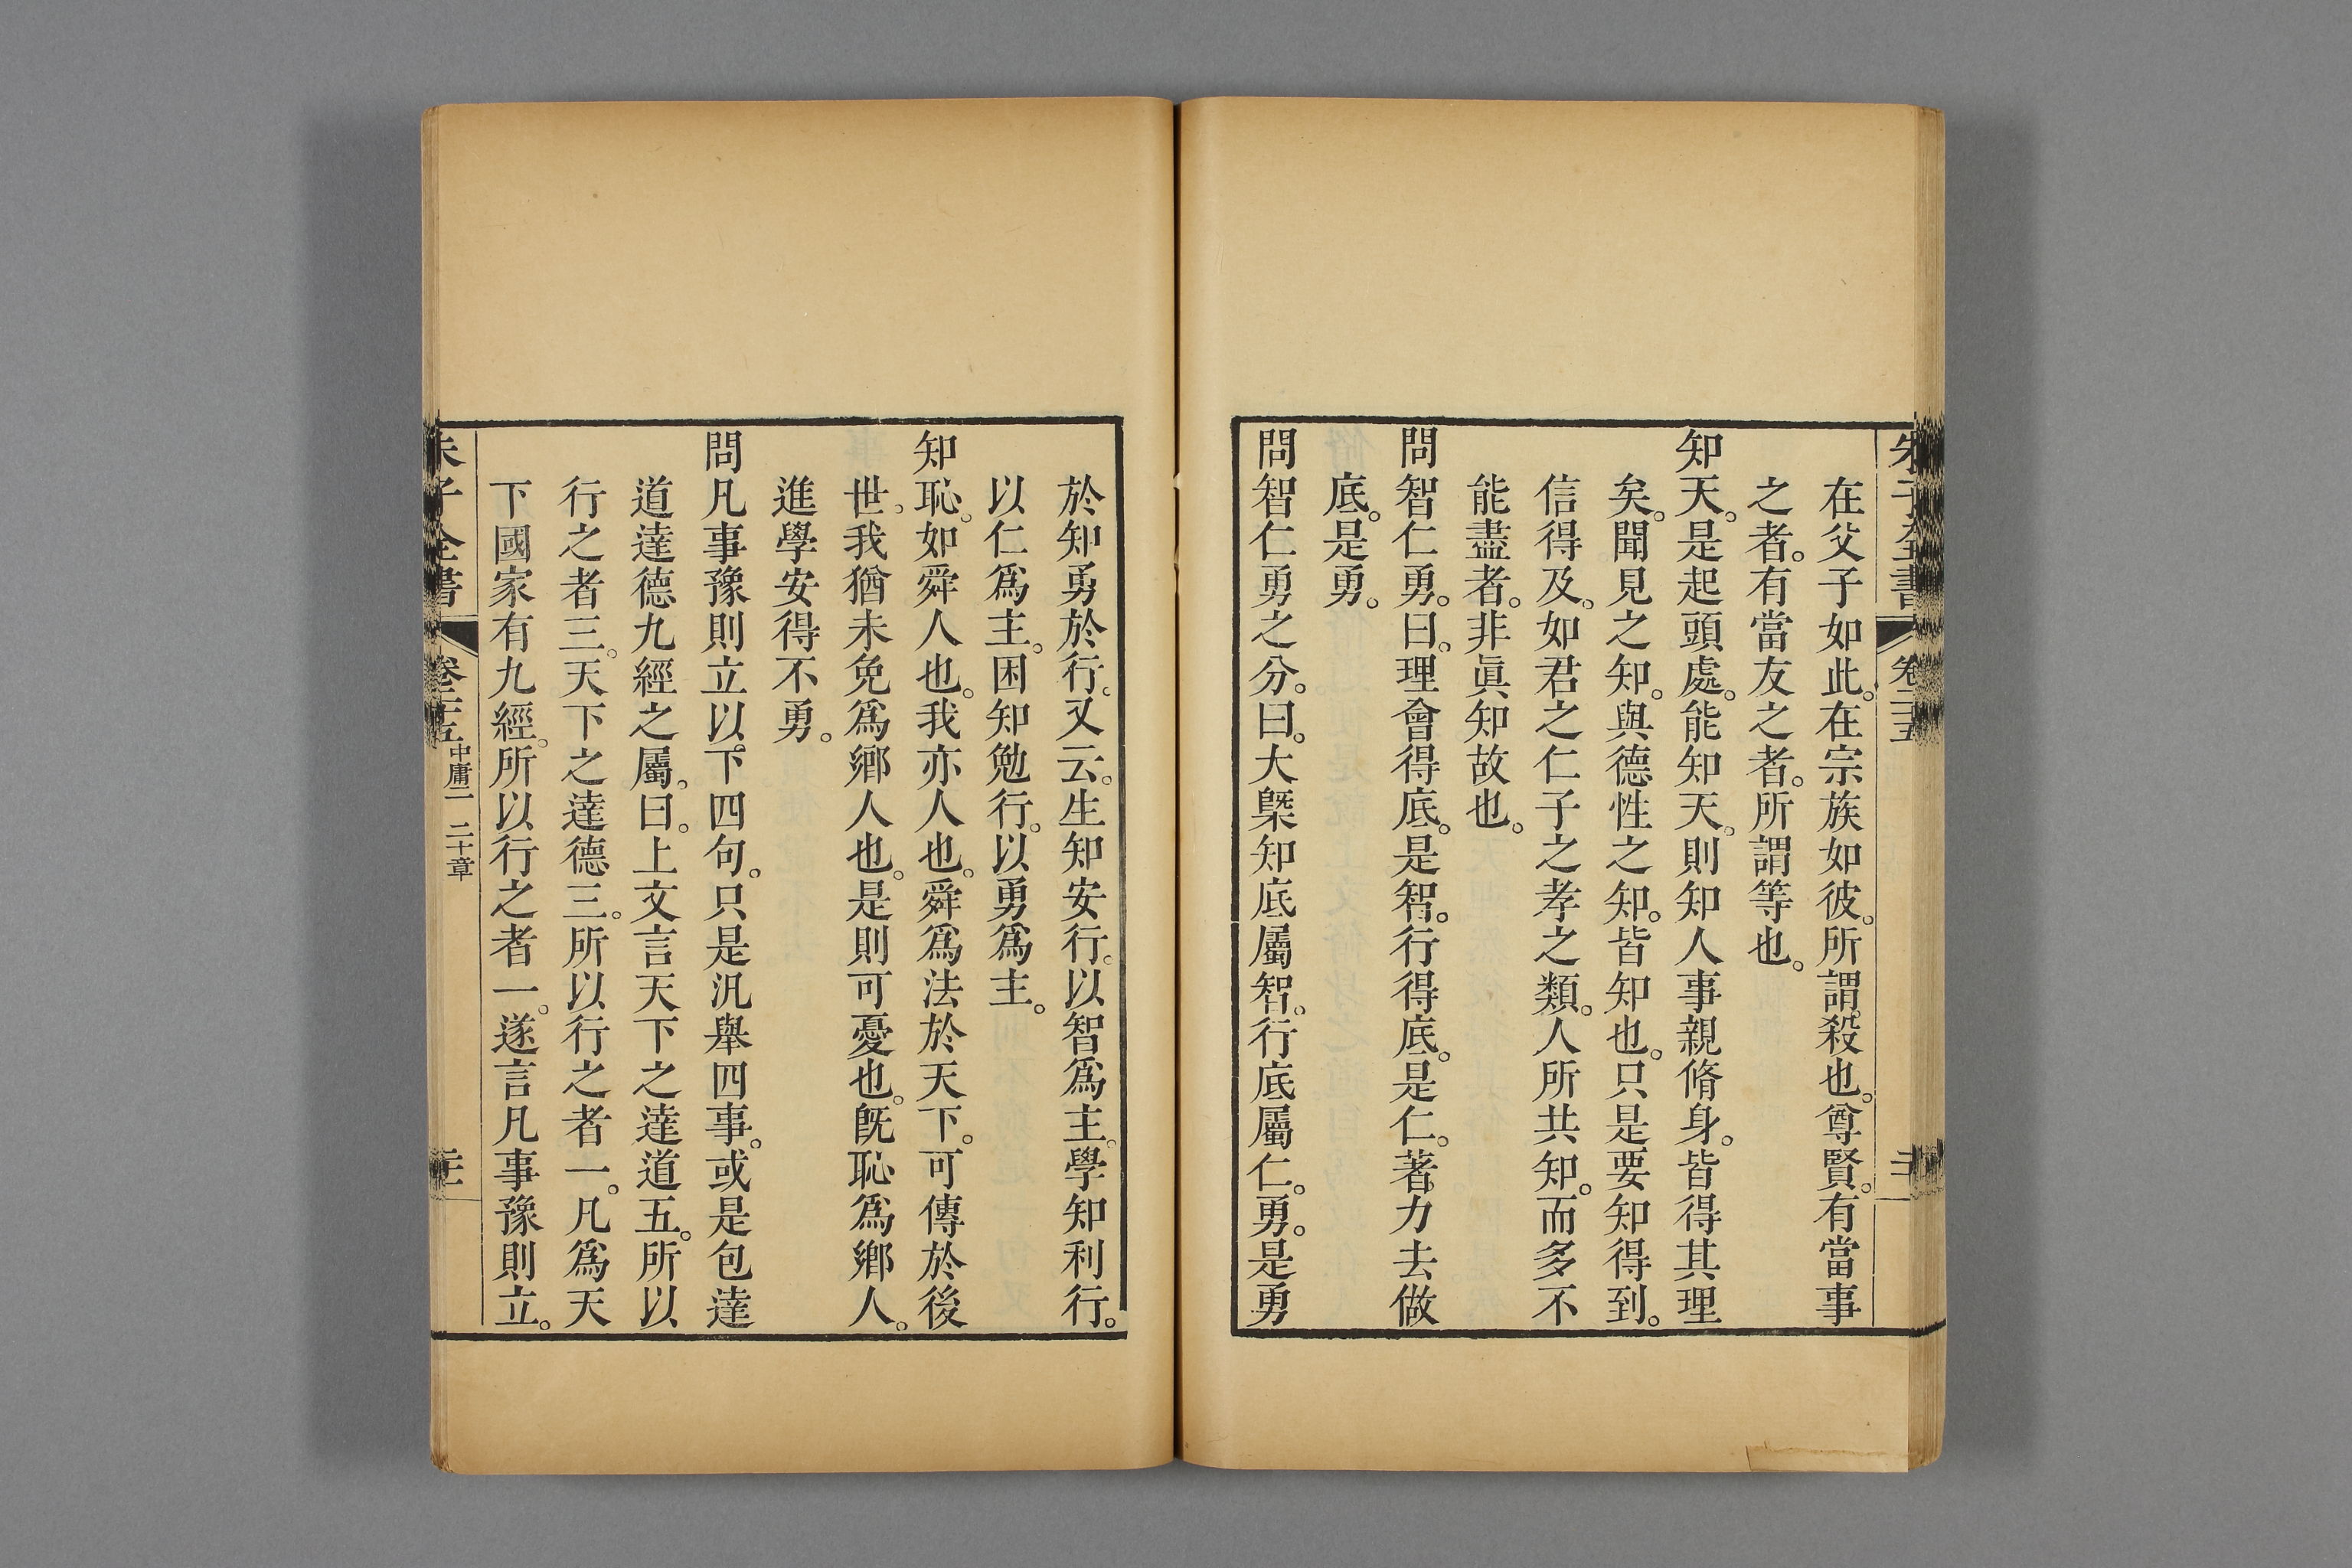 朱子全書
卷二十五
在父子如此。在宗族如彼。所謂殺也。尊賢。有當事
之者。有當友之者。所謂等也。
知天。是起頭處。能知天。則知人事親脩身。皆得其理
矣。聞見之知。與德性之知。皆知也。只是要知得到。
信得及。如君之仁子之孝之類。人所共知。而多不
能盡者。非眞知故也。
問智仁勇。曰。理會得底。是智。行得底。是仁。著力去做
底。是勇。
問智仁勇之分。曰。大槩知底屬智。行底屬仁。勇。是勇
於知勇於行。又云。生知安行。以智爲主。學知利行。
以仁爲主。困知勉行。以勇爲主。
知恥。如舜人也。我亦人也。舜爲法於天下。可傳於後
世。我猶未免爲鄉人也。是則可憂也。旣恥爲鄉人。
進學安得不勇。
問凡事豫則立以下四句。只是汎舉四事。或是包達
道達德九經之屬。曰。上文言天下之達道五。所以
行之者三。天下之達德三。所以行之者一。凡爲天
下國家有九經。所以行之者一。遂言凡事豫則立。
朱子全書
卷二十五
中庸二 二十章